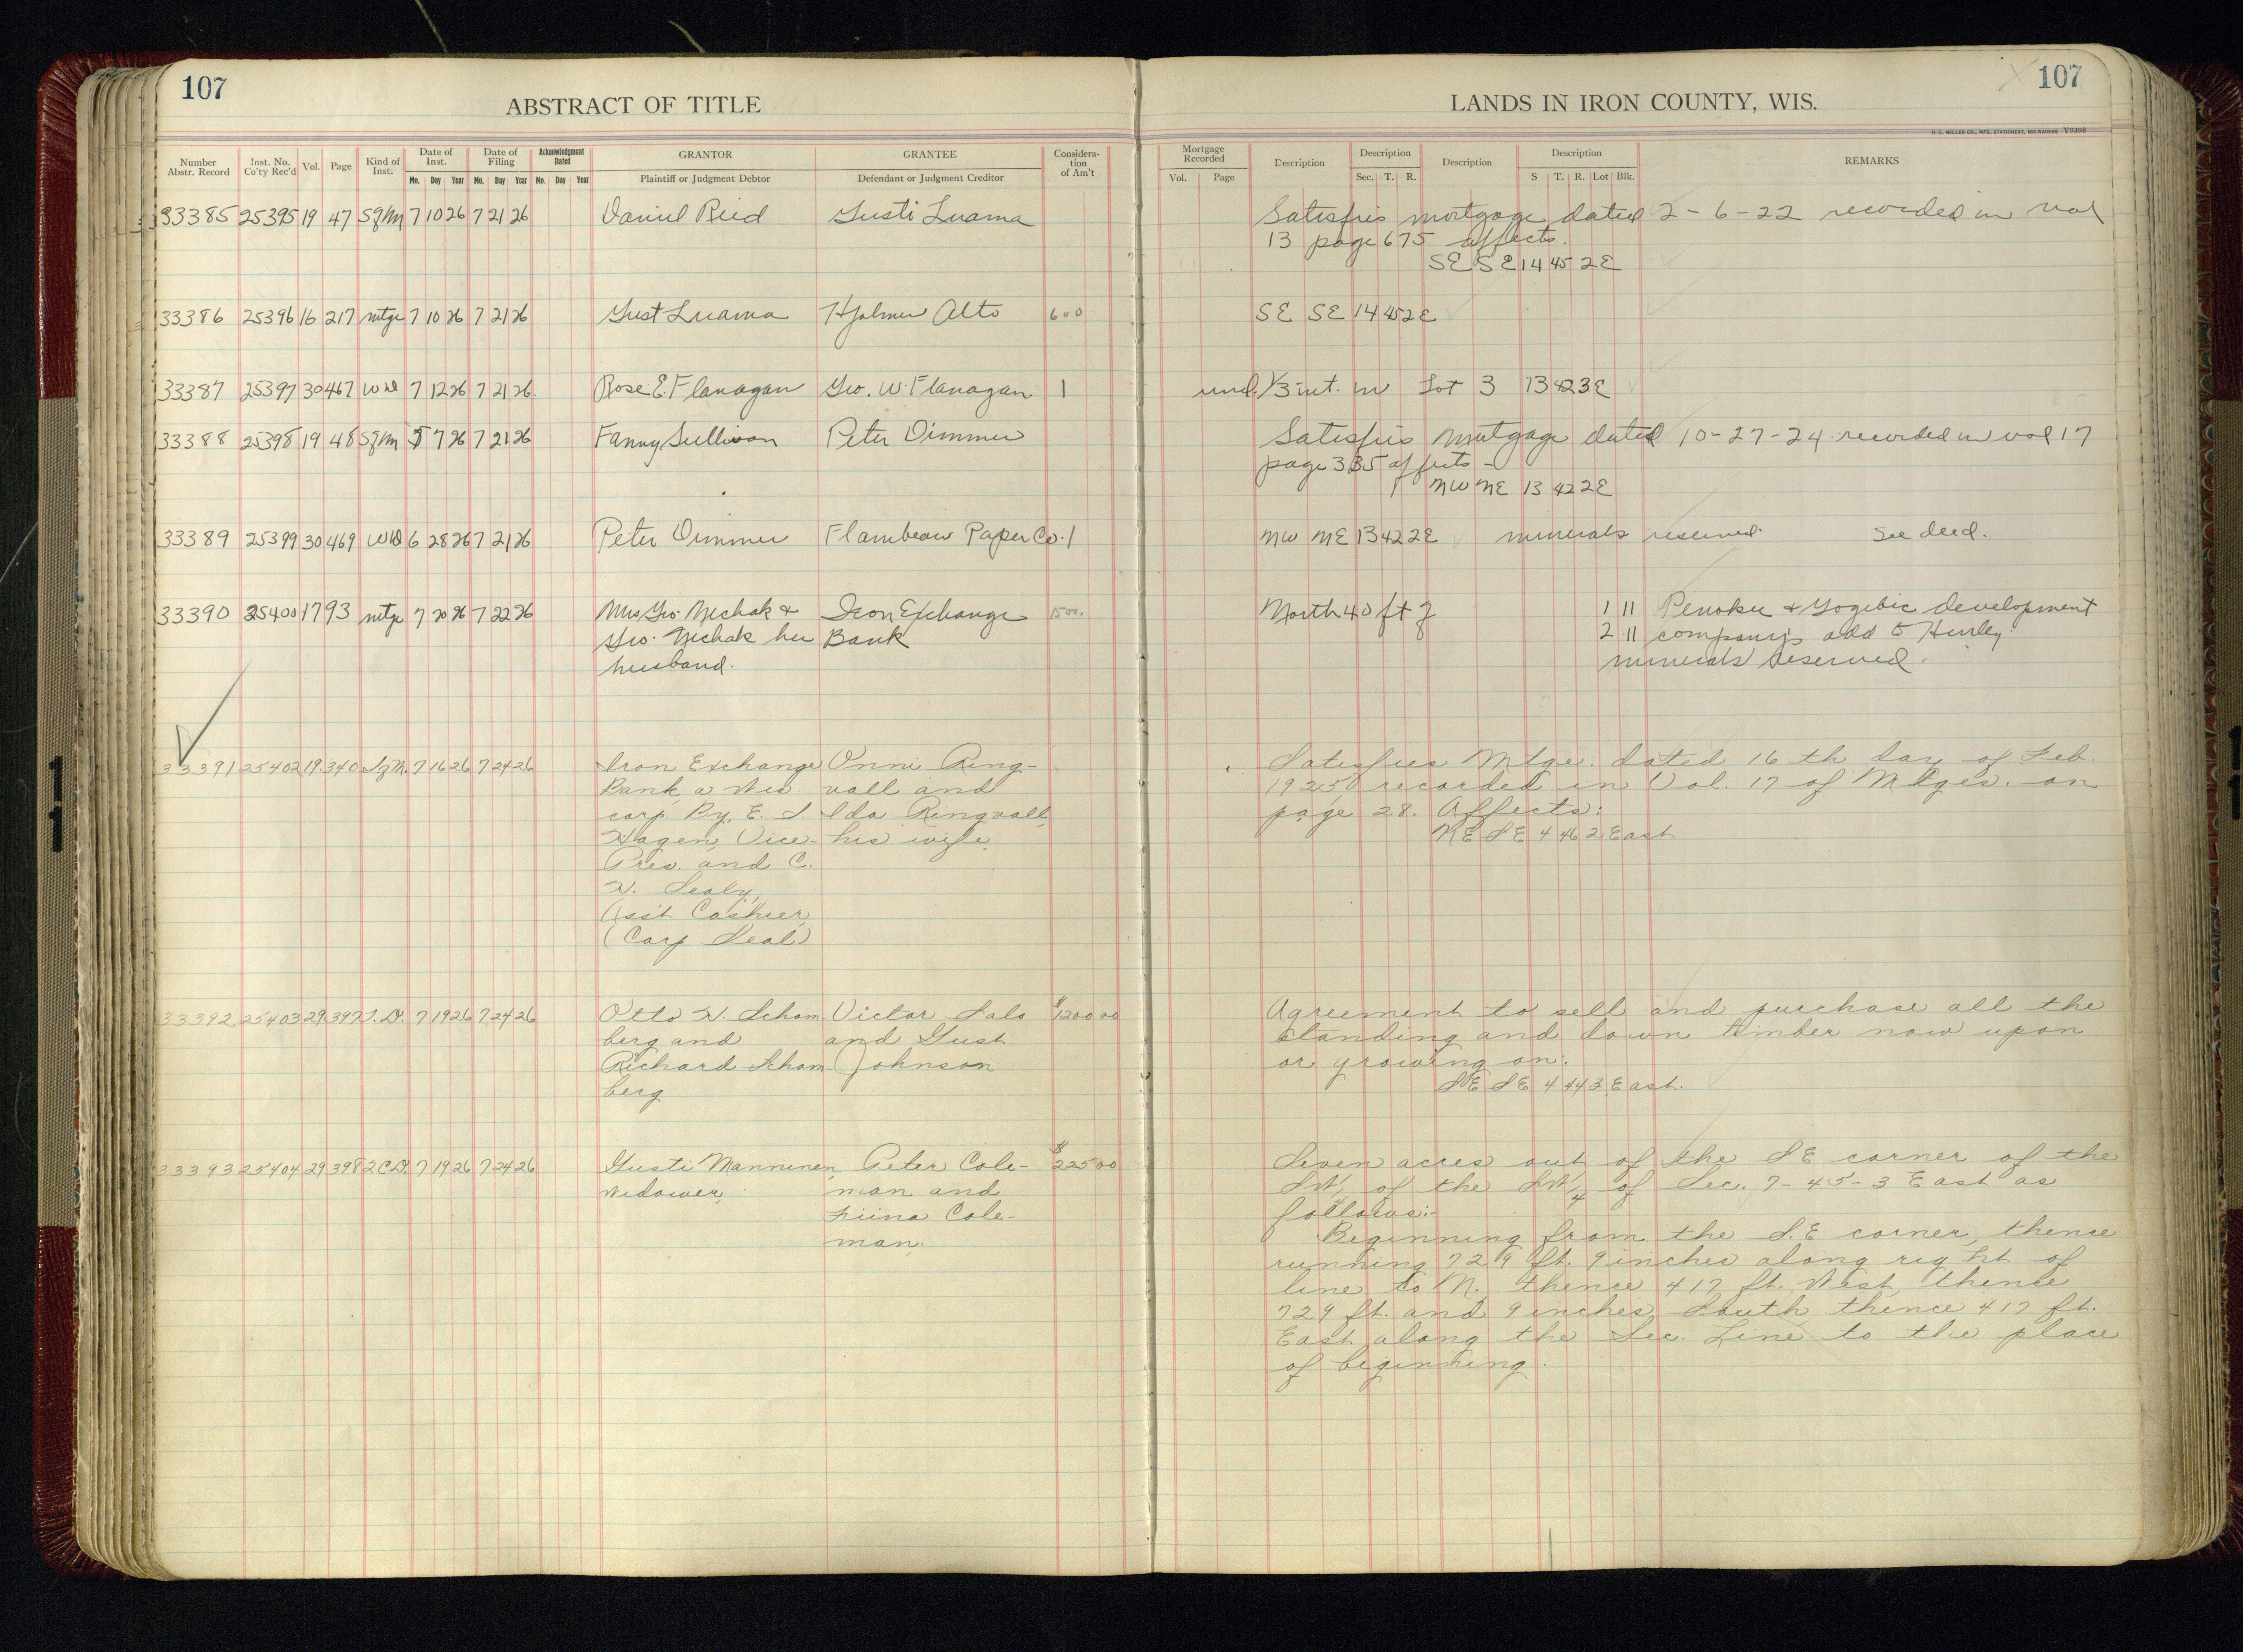 107
ABSTRACT OF TITLE
LANDS IN IRON COUNTY, WIS.
107
H. C. MILLER CO., MFG. STATIONERS, MILWAUKEE Y9398
Number Abstr. Record Inst. No. Co'ty Rec'd Vol. Page Kind of Inst. Date of Inst. Mo. Day Year Date of Filing Mo. Day Year Acknowledgment Dated Mo. Day Year GRANTOR Plaintiff or Judgment Debtor GRANTEE Defendant or Judgment Creditor Consideration of Am't
Mortgage Recorded Vol. Page Description Description Sec. T. R. Description Description S T. R. Lot Blk. REMARKS
33385 25395 19 47 Sgm 7 10 26 7 21 26 Daniel Reid Gusti Luama Satisfies mortgage dated 2-6-22 recorded in vol
13 page 675 affects.
SE SE 14 45 2E
33386 25396 16 217 mtge 7 10 26 7 21 26 Gust Luama Hjalmer Alto 600 SE SE 14 45 2E
33387 25397 30 467 WD 7 12 26 7 21 26 Rose E. Flanagan Geo. W. Flanagan 1 und. 1/3 int. in Lot 3 13 42 3E
33388 25398 19 48 Sgm 7 26 7 21 26 Fanny Sullivan Peter Dimmer Satisfies Mortgage dated 10-27-24 recorded in vol 17
page 335 affects -
NW NE 13 42 2E
33389 25399 30 469 WD 6 28 26 7 21 26 Peter Dimmer Flambeau Paper Co. 1 NW NE 13 42 2E minerals reserved. See deed.
33390 25400 17 93 mtge 7 20 26 7 22 26 Mrs Geo. Nechak & Iron Exchange 1500. North 40 ft of 1 11 Penokee & Gogebic development
Geo. Nechak her Bank 2 11 company's add to Hurley.
husband. minerals reserved.
33391 25402 19 340 SgM. 7 16 26 7 24 26 Iron Exchange Onni Ring- Satisfies Mtge. dated 16 th day of Feb.
Bank, a Wis vall and 1925, recorded in Vol. 17 of Mtges. on
corp. By, E. J. Ida Ringvall, page 28. Affects:
Hagen, Vice- his wife. NE SE 4 46 2 East
Pres. and C.
H. Sealy,
Ass't Cashier,
(Corp Seal)
33392 25403 29 397 7 19 26 7 24 26 Otto H. Schom Victor Salo $1200 00 Agreement to sell and purchase all the
berg and and Gust standing and down timber now upon
Richard Schom- Johnson or growing on:
berg SE SE 4 44 3 East.
33393 25404 29 398 2CD. 7 19 26 7 24 26 Gusti Manninen, Peter Cole- $225 00 Seven acres out of the SE corner of the
Widower, man and SW, of the SW/4 of Sec. 7-45-3 East as
Fiina Cole- follows:-
man. Beginning from the S.E corner, thence
running 729 ft. 9 inches along right of
line to N. thence 417 ft. West, thence
729 ft. and 9 inches, South, thence 417 ft.
East along the Sec. Line to the place
of beginning.